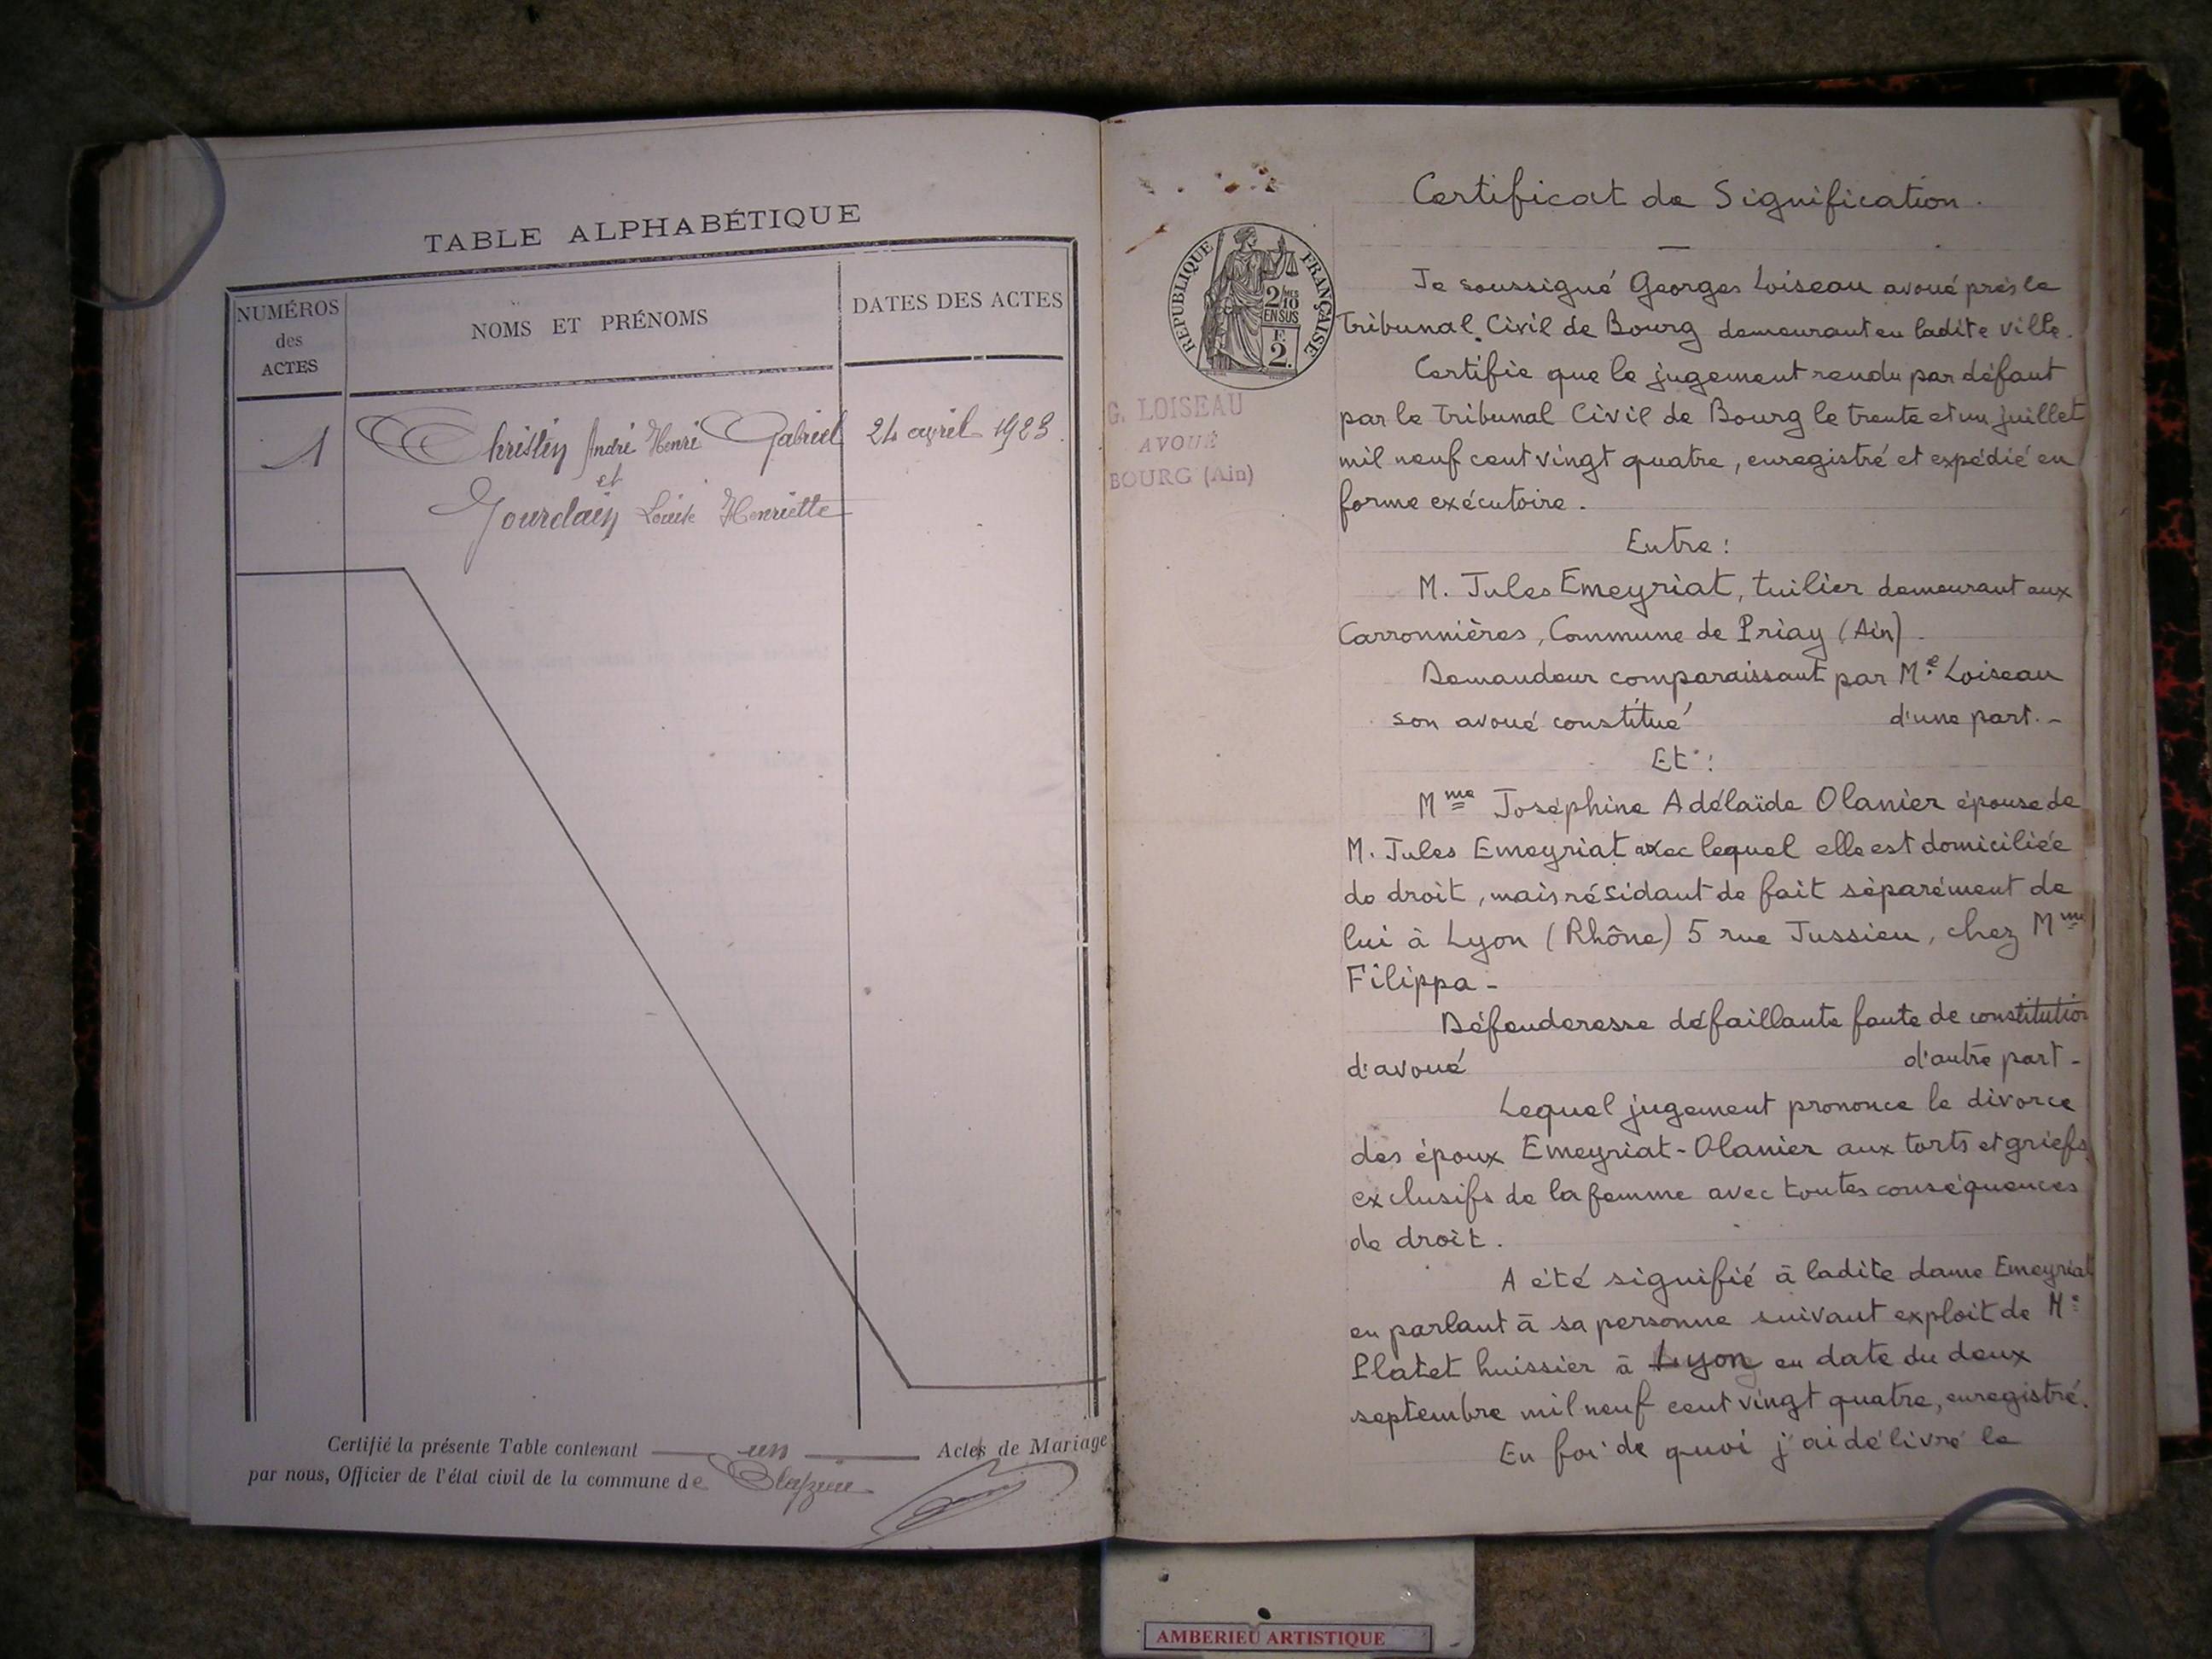 TABLE ALPHABÉTIQUE
NUMÉROS
des
ACTES
NOMS ET PRÉNOMS
DATES DES ACTES
1
Christin André Henri Gabriel
24 avril 1923
et
Jourdain Louise Henriette
Certifié la présente Table contenant un Actes de Mariage
par nous, Officier de l'état civil de la commune de
RÉPUBLIQUE FRANÇAISE
2/MES
10
EN SUS
F.
2.
G. LOISEAU
AVOUÉ
BOURG (Ain)
Certificat de Signification.
Je soussigné Georges Loiseau avoué près le
Tribunal Civil de Bourg demeurant en ladite ville.
Certifie que le jugement rendu par défaut
par le Tribunal Civil de Bourg le trente et un juillet
mil neuf cent vingt quatre, enregistré et expédié en
forme exécutoire.
Entre :
M. Jules Emeyriat, tuilier demeurant aux
Carronnières, Commune de Priay (Ain).
Demandeur comparaissant par Me Loiseau
son avoué constitué d'une part. -
Et :
Mme Joséphine Adélaïde Olanier épouse de
M. Jules Emeyriat avec lequel elle est domiciliée
de droit, mais résidant de fait séparément de
lui à Lyon (Rhône) 5 rue Jussieu, chez Mme
Filippa -
Défenderesse défaillante faute de constitution
d'avoué d'autre part -
Lequel jugement prononce le divorce
des époux Emeyriat-Olanier aux torts et griefs
exclusifs de la femme avec toutes conséquences
de droit.
A été signifié à ladite dame Emeyriat
en parlant à sa personne suivant exploit de Me
Platet huissier à Lyon en date du deux
septembre mil neuf cent vingt quatre, enregistré.
En foi de quoi j'ai délivré le
AMBERIEU ARTISTIQUE